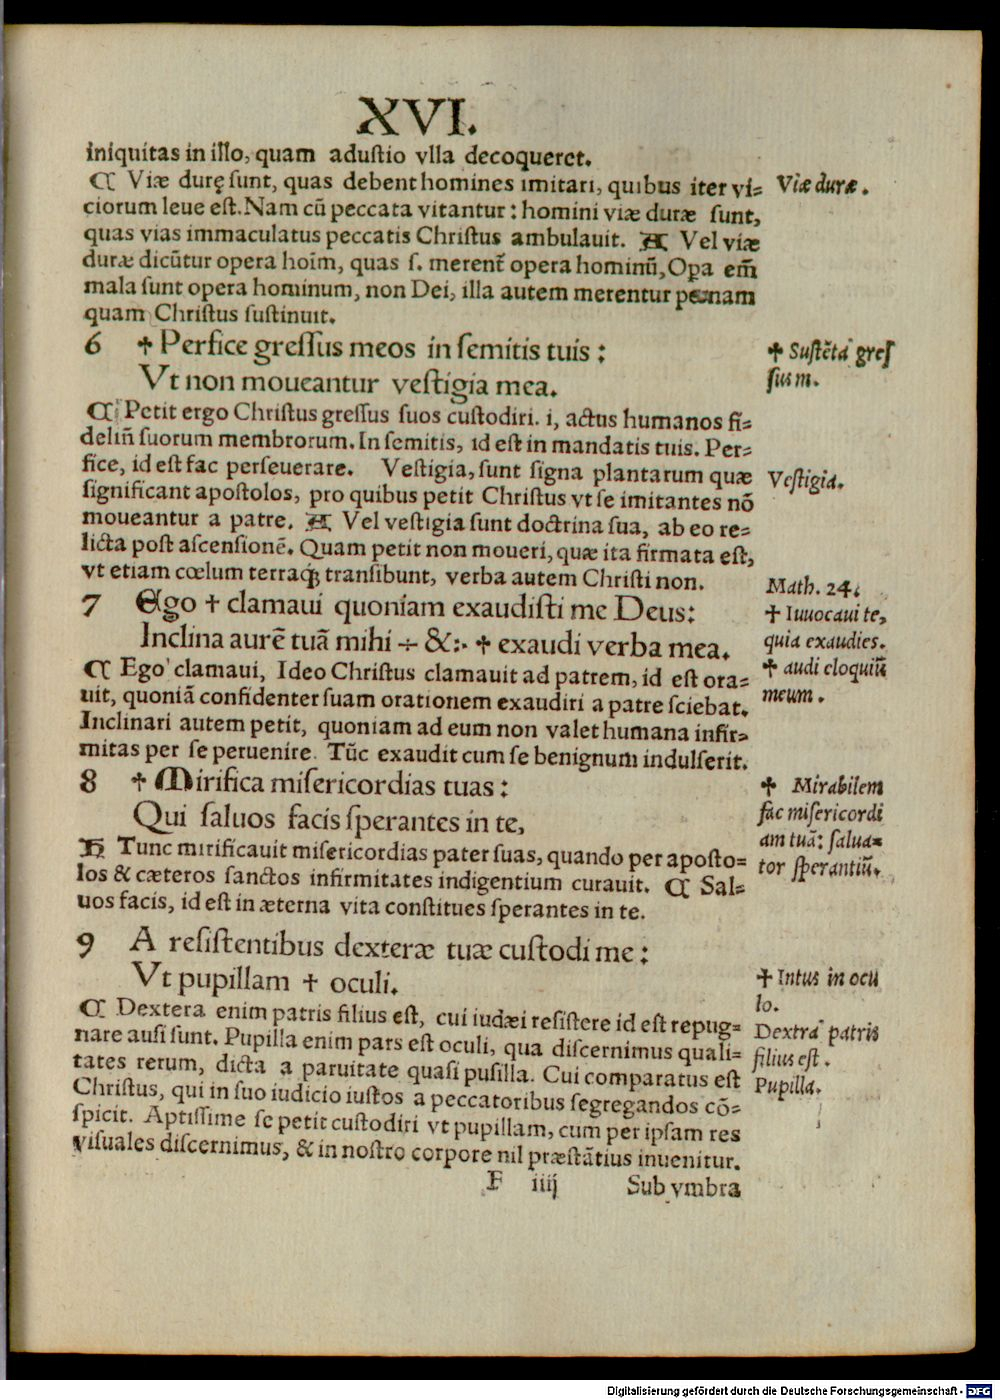 XVI.
iniquitas in illo, quam adustio vlla decoqueret.
¶ Viæ durę sunt, quas debent homines imitari, quibus iter vi=
ciorum leue est. Nam cū peccata vitantur: homini viæ duræ sunt,
quas vias immaculatus peccatis Christus ambulauit. A Vel viæ
duræ dicūtur opera hoīm, quas s. merent̄ opera hominū, Opa em̄
mala sunt opera hominum, non Dei, illa autem merentur pœnam
quam Christus sustinuit.
Viæ duræ.
6 ✝ Perfice gressus meos in semitis tuis:
Vt non moueantur vestigia mea.
✝ Sustēta gres
sus m.
¶ Petit ergo Christus gressus suos custodiri. i, actus humanos fi=
deliū suorum membrorum. In semitis, id est in mandatis tuis. Per=
fice, id est fac perseuerare. Vestigia, sunt signa plantarum quæ
significant apostolos, pro quibus petit Christus vt se imitantes nō
moueantur a patre. A Vel vestigia sunt doctrina sua, ab eo re=
licta post ascensionē. Quam petit non moueri, quæ ita firmata est,
vt etiam cœlum terraq; transibunt, verba autem Christi non.
Vestigia.
Math. 24.
7 Ego ✝ clamaui quoniam exaudisti me Deus:
Inclina aurē tuā mihi ÷ &:· ✝ exaudi verba mea.
✝ Inuocaui te,
quia exaudies.
✝ audi eloquiū
meum.
¶ Ego clamaui, Ideo Christus clamauit ad patrem, id est ora=
uit, quoniā confidenter suam orationem exaudiri a patre sciebat.
Inclinari autem petit, quoniam ad eum non valet humana infir=
mitas per se peruenire. Tūc exaudit cum se benignum indulserit.
8 ✝ Mirifica misericordias tuas:
Qui saluos facis sperantes in te,
✝ Mirabilem
fac misericordi
am tuā: salua=
tor sperantiū.
H Tunc mirificauit misericordias pater suas, quando per aposto=
los & cæteros sanctos infirmitates indigentium curauit. ¶ Sal=
uos facis, id est in æterna vita constitues sperantes in te.
9 A resistentibus dexteræ tuæ custodi me:
Vt pupillam ✝ oculi.
✝ Intus in ocu
lo.
¶ Dextera enim patris filius est, cui iudæi resistere id est repug=
nare ausi sunt. Pupilla enim pars est oculi, qua discernimus quali=
tates rerum, dicta a paruitate quasi pusilla. Cui comparatus est
Christus, qui in suo iudicio iustos a peccatoribus segregandos cō=
spicit. Aptissime se petit custodiri vt pupillam, cum per ipsam res
visuales discernimus, & in nostro corpore nil præstātius inuenitur.
Dextra patris
filius est.
Pupilla.
F iiij Sub vmbra
Digitalisierung gefördert durch die Deutsche Forschungsgemeinschaft - DFG